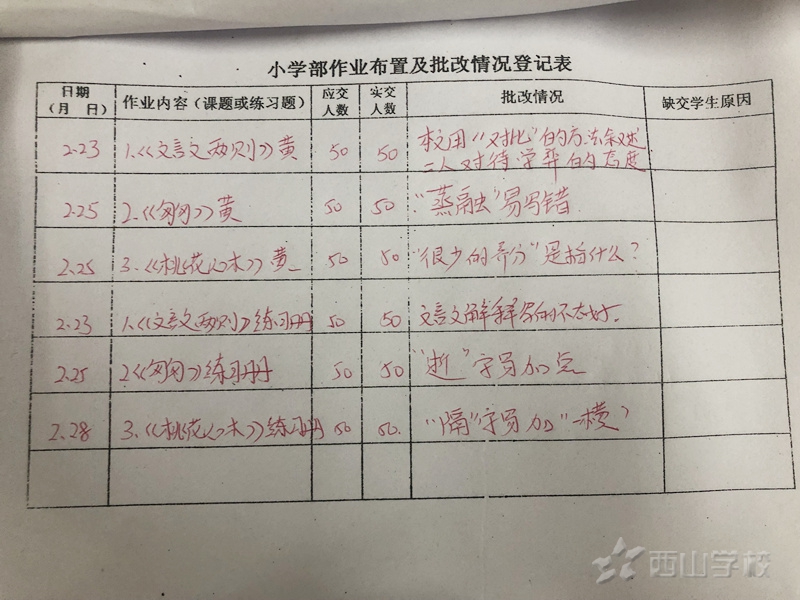 小学部作业布置及批改情况登记表
日期（月 日） 作业内容（课题或练习题） 应交人数 实交人数 批改情况 缺交学生原因
2.23 1.《文言文两则》黄 50 50 本文用“对比”的方法叙述二人对待学弈的态度
2.25 2.《匆匆》黄 50 50 “蒸融”易写错
2.25 3.《桃花心木》黄 50 50 “很少的养分”是指什么？
2.23 1.《文言文两则》练习册 50 50 文言文解释写的不太好.
2.25 2《匆匆》练习册 50 50 “逝”字另加点
2.28 3.《桃花心木》练习册 50 50. “隔”字另加“一横”
西山学校